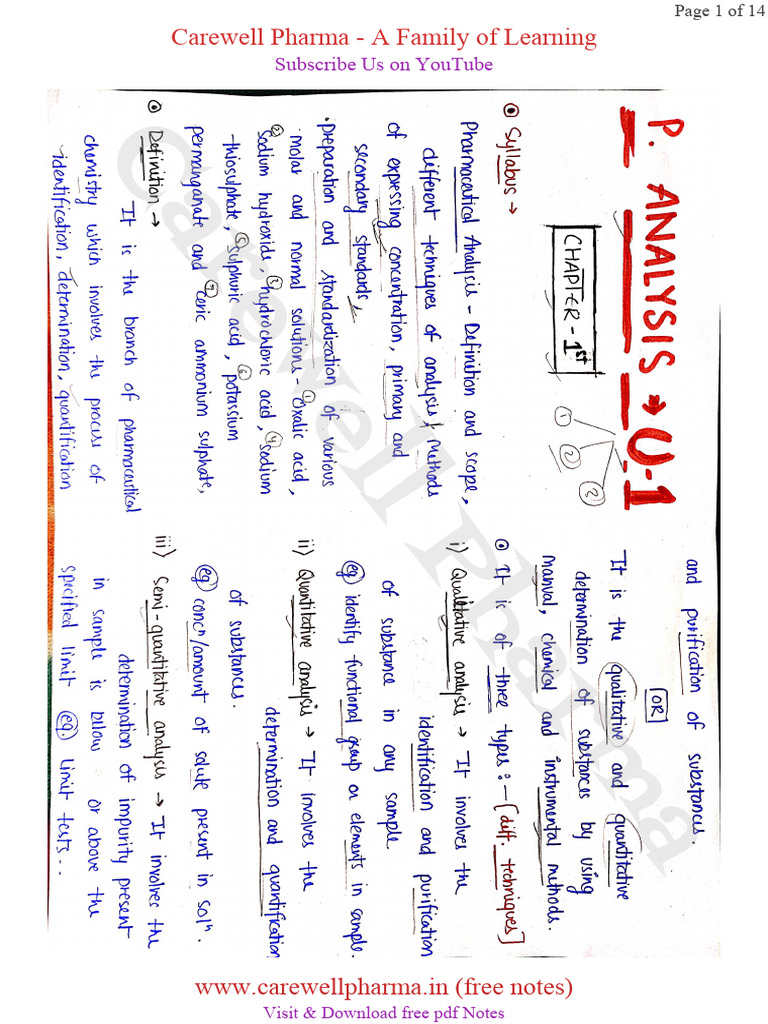 Page 1 of 14
Carewell Pharma - A Family of Learning
Subscribe Us on YouTube
P. ANALYSIS → U-1
CHAPTER - 1st
①
②
③
⊙ Syllabus →
Pharmaceutical Analysis - Definition and scope,
different techniques of analysis, methods
of expressing concentration, primary and
secondary standards.
• Preparation and standardization of various
molar and normal solutions - ① Oxalic acid,
② Sodium hydroxide, ③ hydrochloric acid, ④ sodium
-thiosulphate, ⑤ sulphuric acid, ⑥ potassium
permanganate and ⑦ ceric ammonium sulphate,
⊙ Definition →
It is the branch of pharmaceutical
chemistry which involves the process of
identification, determination, quantification
and purification of substances.
OR
It is the qualitative and quantitative
determination of substances by using
manual, chemical and instrumental methods.
⊙ It is of three types : - [diff. techniques]
i) Qualitative analysis → It involves the
identification and purification
of substance in any sample.
eg identify functional group or elements in sample.
ii) Quantitative analysis → It involves the
determination and quantification
of substances.
eg concn/amount of solute present in soln.
iii) Semi-quantitative analysis → It involves the
determination of impurity present
in sample is below or above the
specified limit eg limit tests...
Carewell Pharma
www.carewellpharma.in (free notes)
Visit & Download free pdf Notes